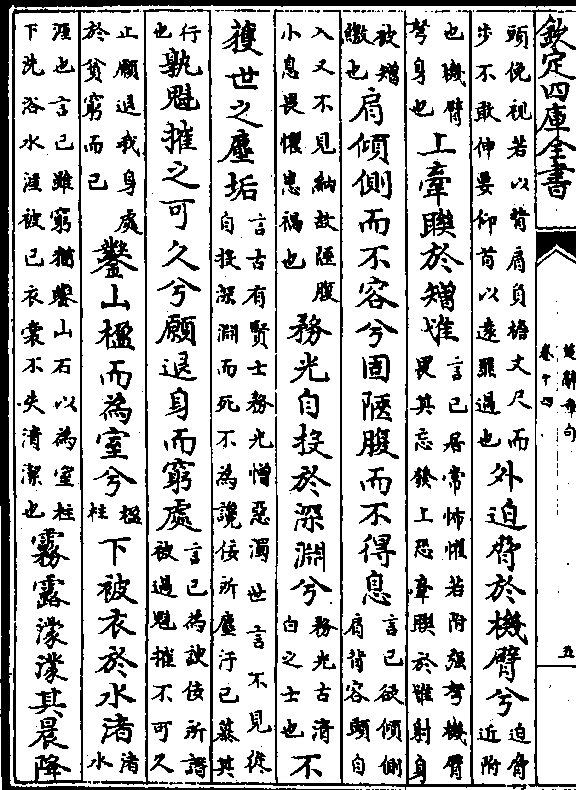 欽定四庫全書
楚辭章句
卷十四
五
頭俛視若以背肩負檐丈尺而
步不敢伸要仰首以遠罪過也
外迫脅於機臂兮
迫脅
近附
也機臂
弩身也
上牽聯於矰隿
言己居常怖懼若附强弩機臂
畏其忘發上恐牽聯於隿射身
被矰
繳也
肩傾側而不容兮固陿腹而不得息
言己欲傾側
肩背容頭自
入又不見納故陿腹
小息畏懼患禍也
務光自投於深淵兮
務光古清
白之士也
不
獲世之塵垢
言古有賢士務光憎惡濁世言不見從
自投深淵而死不為讒佞所塵汙己慕其
行
也
孰魁摧之可久兮願退身而窮處
言己為諛佞所譖
被過魁摧不可久
止願退我身處
於貧窮而已
鑿山楹而為室兮
楹
柱
下被衣於水渚
渚
水
涯也言己雖窮猶鑿山石以為室柱
下洗浴水涯被己衣裳不失清潔也
霧露濛濛其晨降